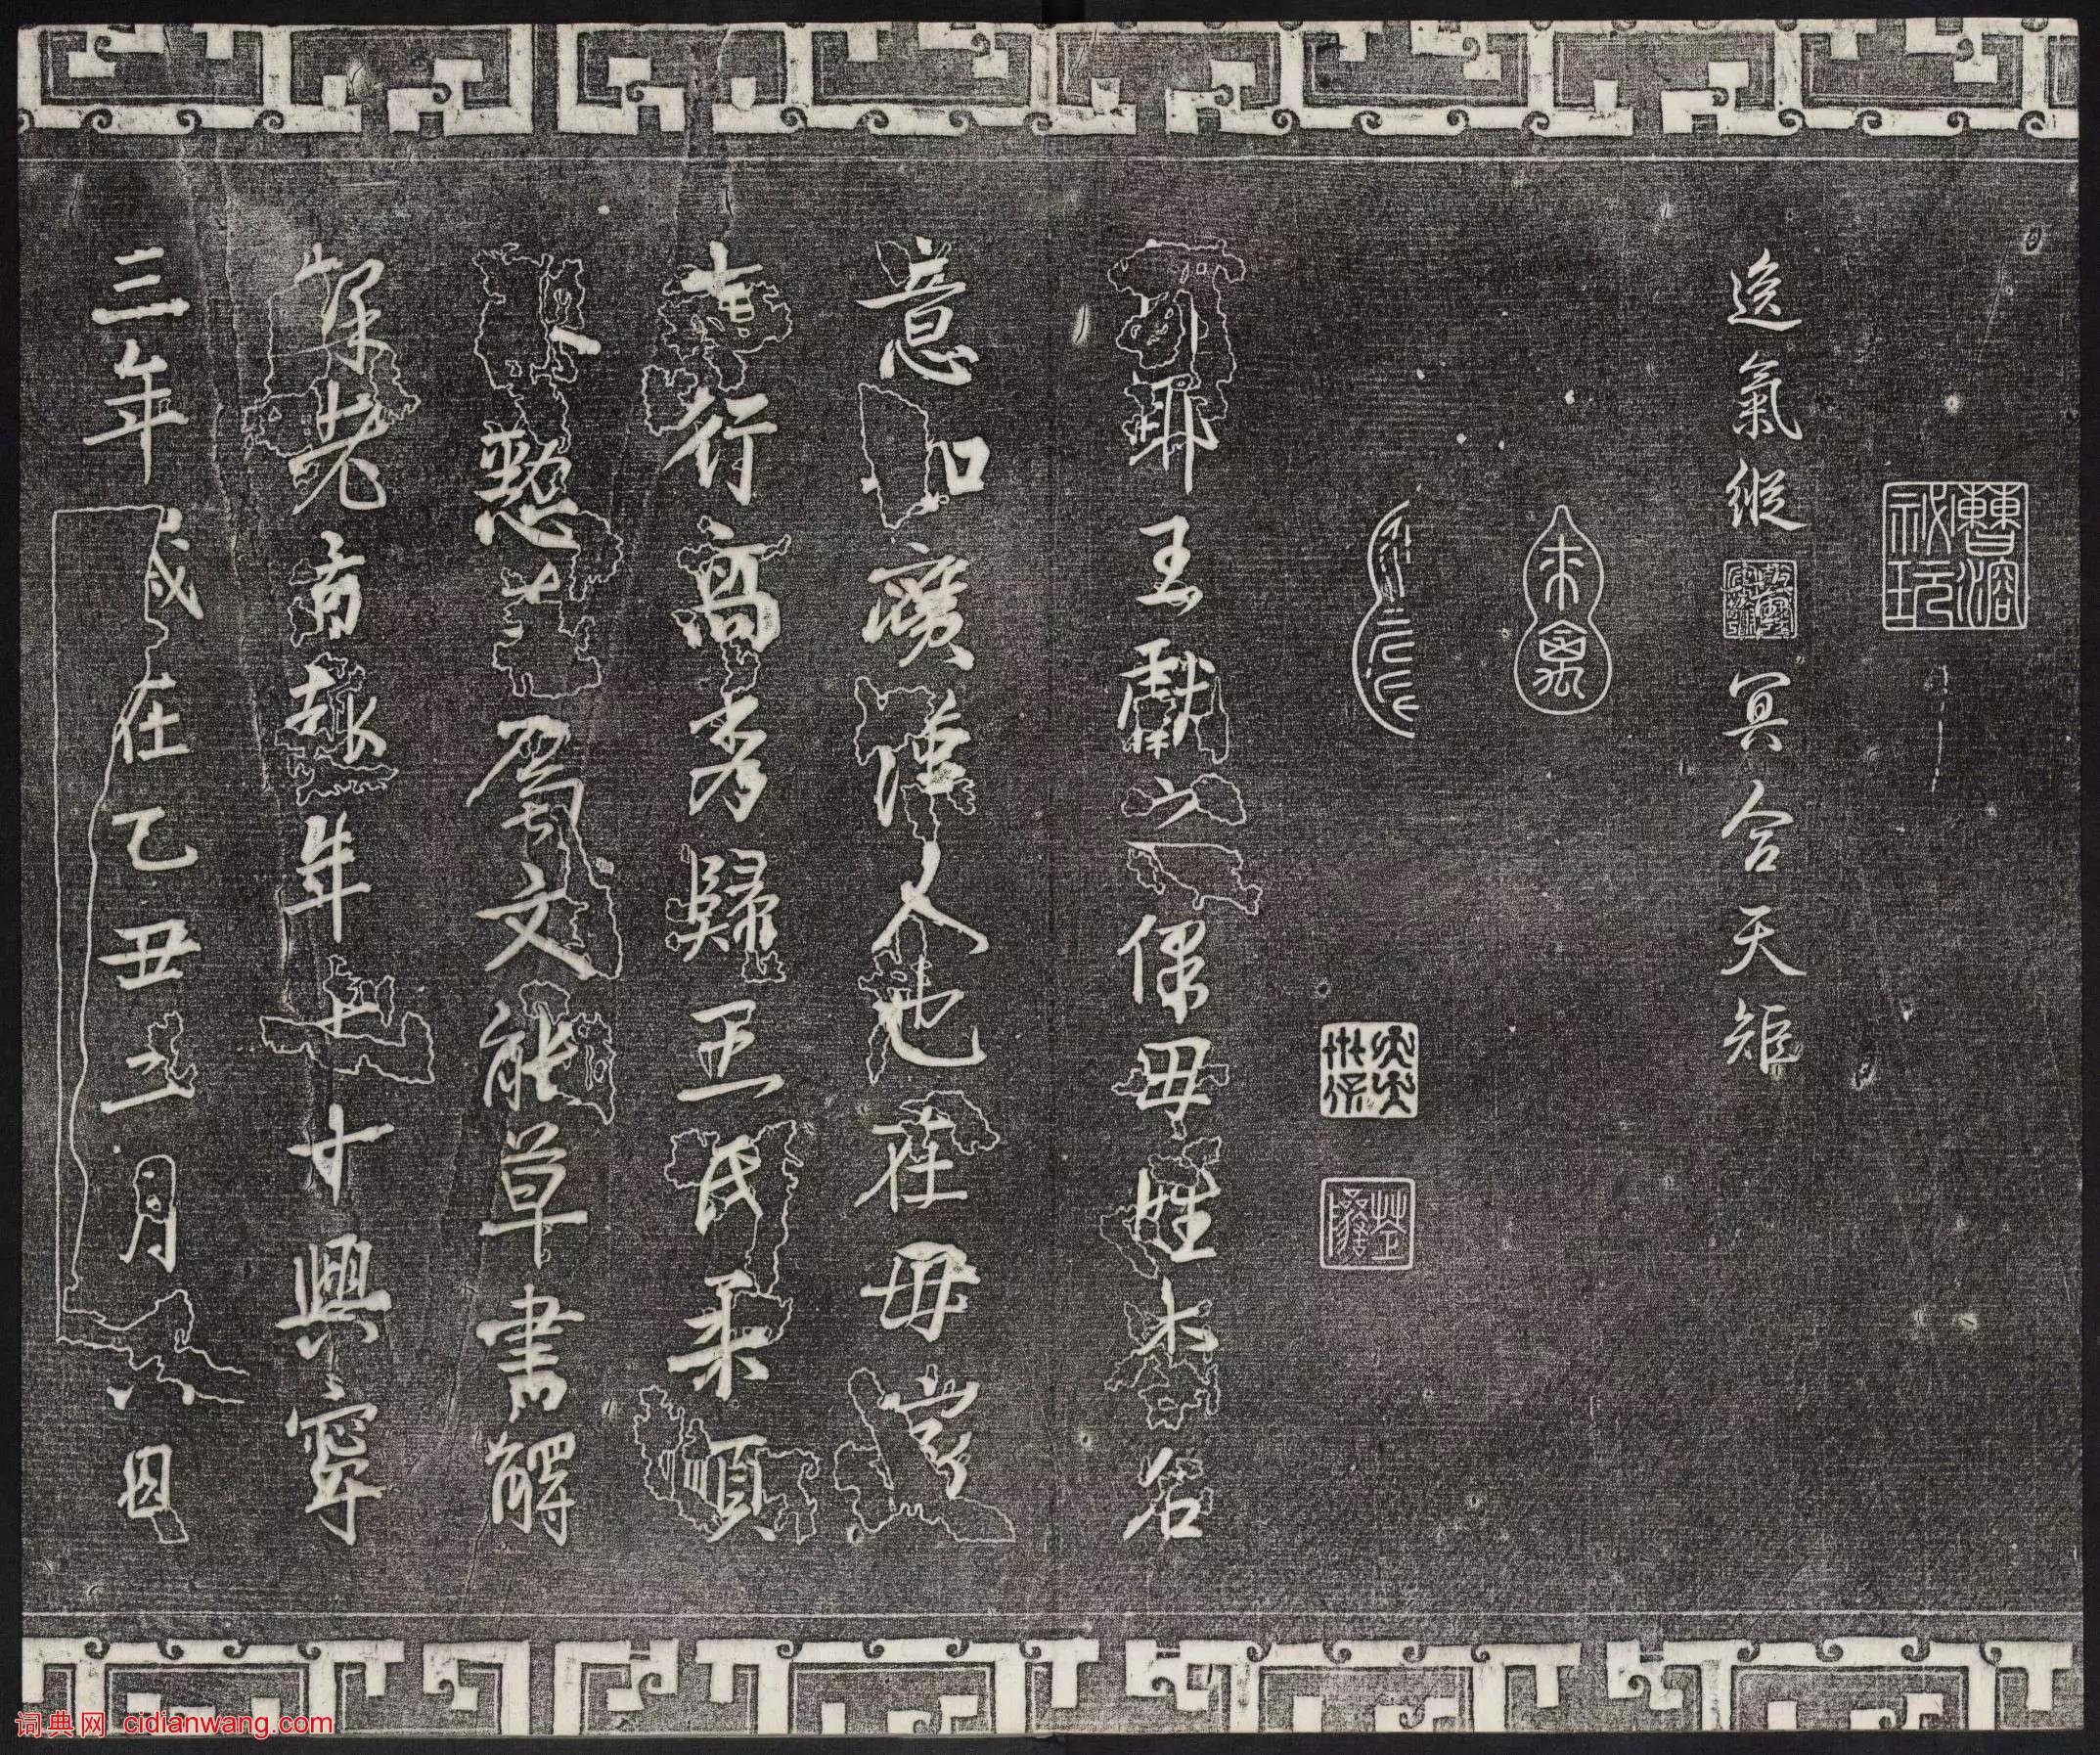 曹溶
祕玩
逸氣縱冥合天矩
郎耶王獻之保母姓李名
意如廣漢人也在母家
志行高秀歸王氏柔順
恭懃善属文能草書解
釋老旨趣年七十興寧
三年歳在乙丑二月六日
词典网 cidianwang.com